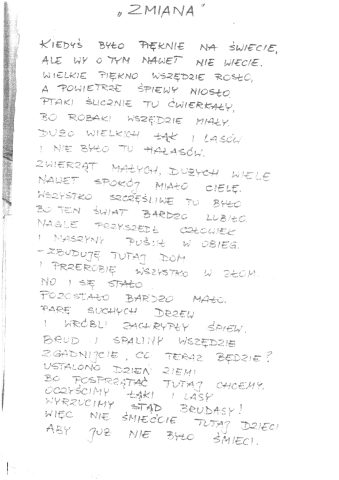 „ZMIANA"
KIEDYŚ BYŁO PIĘKNIE NA ŚWIECIE,
ALE WY O TYM NAWET NIE WIECIE.
WIELKIE PIĘKNO WSZĘDZIE ROSŁO,
A POWIETRZE ŚPIEWY NIOSŁO
PTAKI ŚLICZNIE TU ĆWIERKAŁY,
BO ROBAKI WSZĘDZIE MIAŁY.
DUŻO WIELKICH ŁĄK I LASÓW
I NIE BYŁO TU HAŁASÓW.
ZWIERZĄT MAŁYCH, DUŻYCH WIELE
NAWET SPOKÓJ MIAŁO CIELĘ.
WSZYSTKO SZCZĘŚLIWE TU BYŁO
BO TEN ŚWIAT BARDZO LUBIŁO.
NAGLE PRZYSZEDŁ CZŁOWIEK
I MASZYNY PUŚCIŁ W OBIEG.
- ZBUDUJĘ TUTAJ DOM
I PRZEROBIĘ WSZYSTKO W ZŁOM.
NO I SIĘ STAŁO
POZOSTAŁO BARDZO MAŁO.
PARĘ SUCHYCH DRZEW
I WRÓBLI ZACHRYPŁY ŚPIEW.
BRUD I SPALINY WSZĘDZIE
ZGADNIJCIE, CO TERAZ BĘDZIE?
USTALONO DZIEŃ ZIEMI
BO POSPRZĄTAĆ TUTAJ CHCEMY.
OCZYŚCIMY ŁĄKI I LASY
WYRZUCIMY STĄD BRUDASY!
WIĘC NIE ŚMIEĆCIE TUTAJ DZIECI
ABY JUŻ NIE BYŁO ŚMIECI.